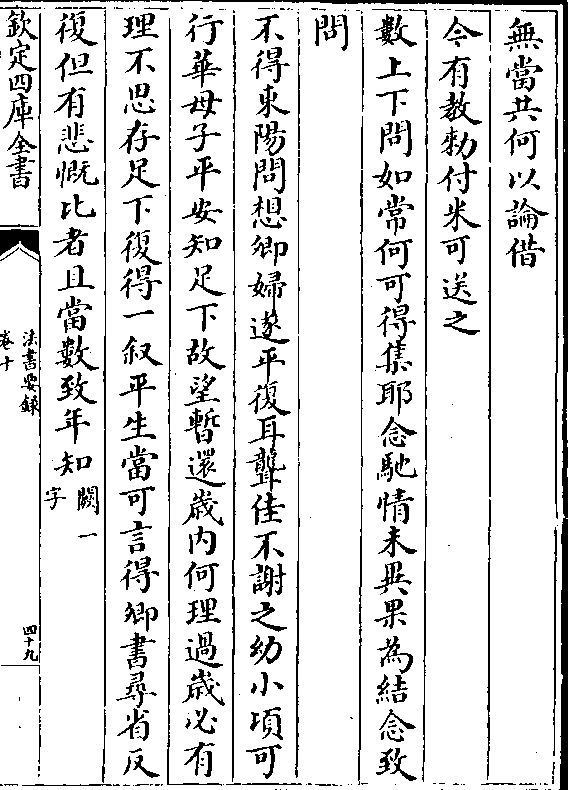 無當共何以論借
今有教勑付米可送之
數上下問如常何可得集耶念馳情未異果為結念致
問
不得東陽問想卿婦遂平復耳聾佳不謝之幼小項可
行華母子平安知足下故望暫還歲内何理過歲必有
理不思存足下復得一叙平生當可言得卿書尋省反
復但有悲慨比者且當數致年知闕一字
欽定四庫全書
法書要錄
卷十
四十九